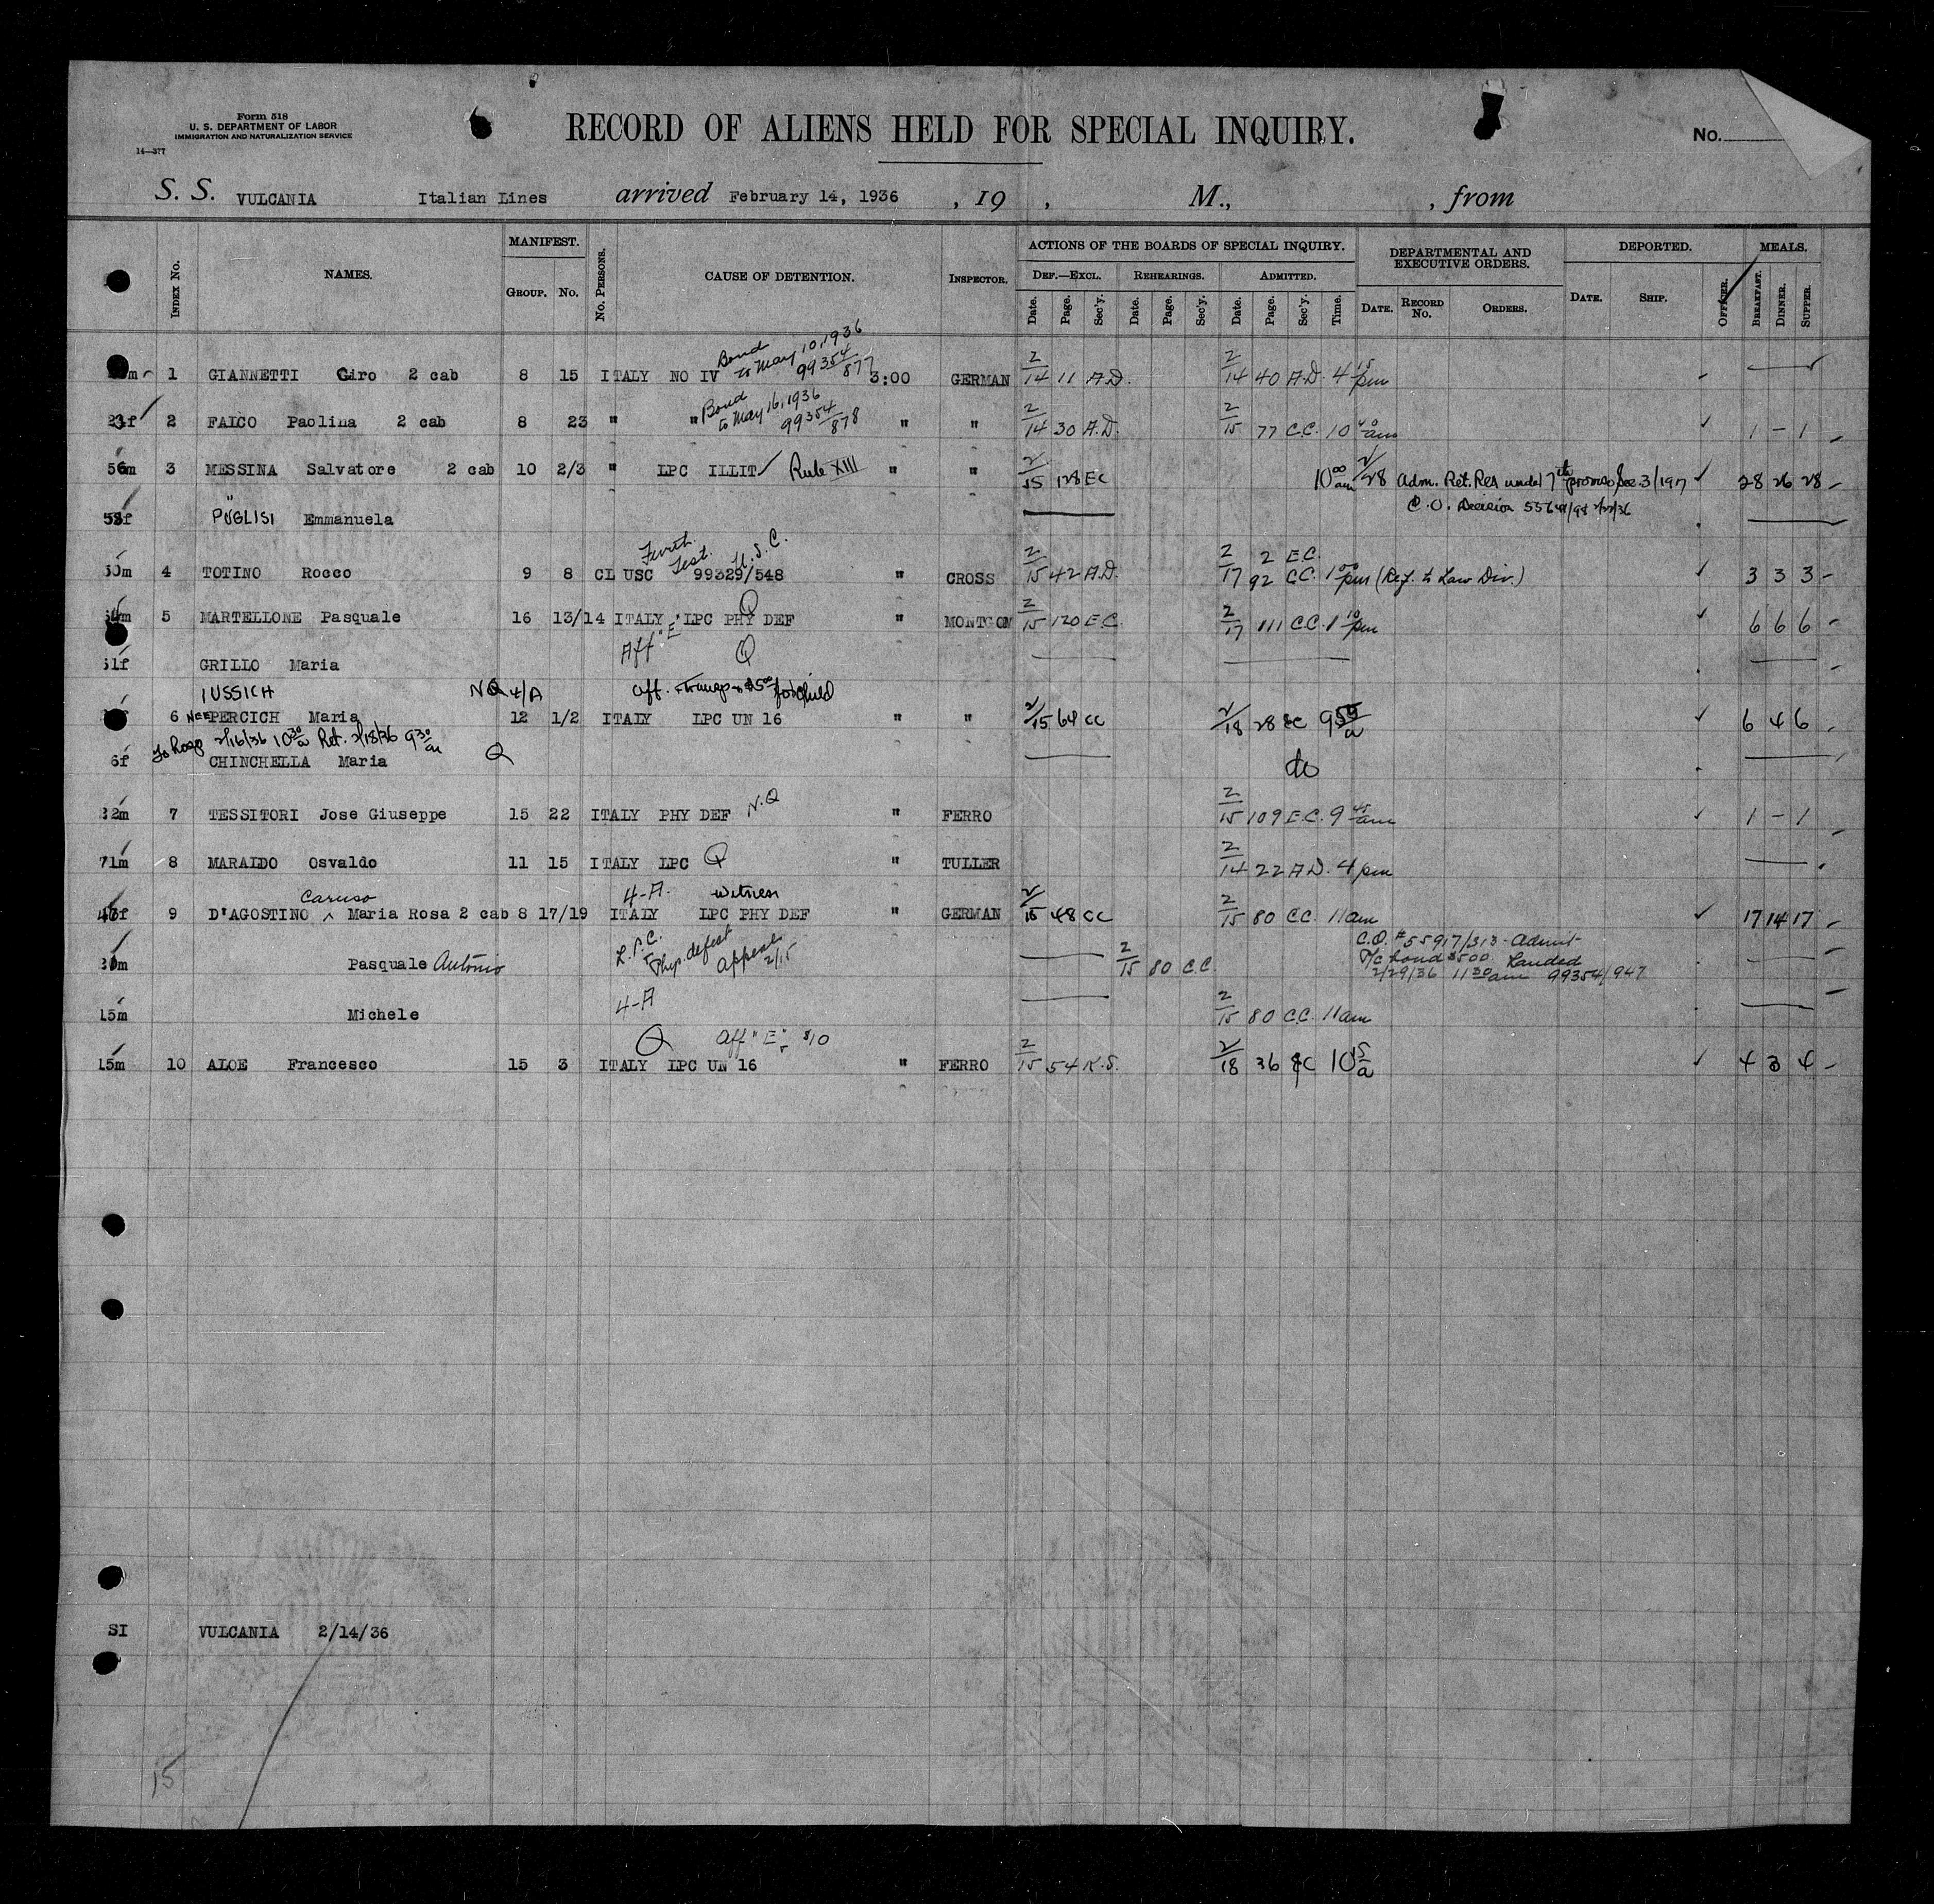 Form 518
U. S. DEPARTMENT OF LABOR
IMMIGRATION AND NATURALIZATION SERVICE
14—377
RECORD OF ALIENS HELD FOR SPECIAL INQUIRY.
No.
S. S. VULCANIA Italian Lines arrived February 14, 1936 , 19 , M., , from
INDEX No. NAMES. MANIFEST. GROUP. No. No. PERSONS. CAUSE OF DETENTION. INSPECTOR. ACTIONS OF THE BOARDS OF SPECIAL INQUIRY. DEF.—EXCL. Date. Page. Sec'y. REHEARINGS. Date. Page. Sec'y. ADMITTED. Date. Page. Sec'y. Time. DEPARTMENTAL AND EXECUTIVE ORDERS. DATE. RECORD No. ORDERS. DEPORTED. DATE. SHIP. OFFICER. MEALS. BREAKFAST. DINNER. SUPPER.
Bond to May 10, 1936 99354/877
1 GIANNETTI Ciro 2 cab 8 15 ITALY NO IV 3:00 GERMAN 2/14 11 A.D. 2/14 40 A.D. 4 15 pm
Bond to May 16, 1936 99354/878
2 FAICO Paolina 2 cab 8 23 " " " " 2/14 30 A.D. 2/15 77 C.C. 10 40 am 1 - 1
56m 3 MESSINA Salvatore 2 cab 10 2/3 " LPC ILLIT Rule XIII " " 2/15 128 EC 10 00 am 2/28 Adm. Ret. Res under 7th proviso Sec. 3/1917 28 26 28
" PUGLISI Emmanuela C.O. Decision
Furth. Test. U.S.C.
4 TOTINO Rocco 9 8 CL USC 99329/548 " CROSS 2/15 42 A.D. 2/17 2 E.C. 92 C.C. 1 00 pm (Ref. to Law Div.) 3 3 3
5 MARTELLONE Pasquale 16 13/14 ITALY LPC PHY DEF Q " MONTGOM 2/15 120 E.C. 2/17 111 C.C. 1 10 pm 6 6 6
Aff "E" Q
GRILLO Maria
IUSSICH NQ 4/A aff. Transp & $5 00 for child
6 Nee PERCICH Maria 12 1/2 ITALY LPC UN 16 " " 2/15 64 CC 2/18 28 EC 9 50 a 6 4 6
To Hosp 2/16/36 10 30 a Ret. 2/18/36 9 30 am
6f CHINCHELLA Maria Q do
7 TESSITORI Jose Giuseppe 15 22 ITALY PHY DEF N.Q " FERRO 2/15 109 E.C. 9 45 am 1 - 1
71m 8 MARAIDO Osvaldo 11 15 ITALY LPC Q " TULLER 2/14 22 A.D. 4 pm
Caruso 4-A. Witness
9 D'AGOSTINO Maria Rosa 2 cab 8 17/19 ITALY LPC PHY DEF " GERMAN 2/15 48 CC 2/15 80 C.C. 11 am 17 14 17
Pasquale Antonio L.P.C. Phys. defect Appeal 2/15 2/15 80 C.C. C.O. #55917/313 - Admit
P/C bond $500. Landed
2/29/36 11 30 am 99354/947
15m Michele 4-A 2/15 80 C.C. 11 am
Q Aff "E" $10
15m 10 ALOE Francesco 15 3 ITALY LPC UN 16 " FERRO 2/15 54 K.S. 2/18 36 EC 10 15 a 4 3 4
SI VULCANIA 2/14/36
15